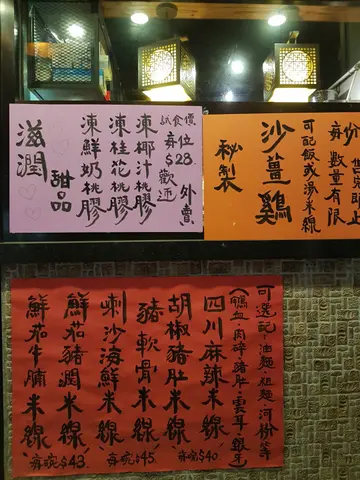 試食價
每位
$28
歡迎
外賣
凍椰汁桃膠
凍桂花桃膠
凍鮮奶桃膠
甜品
滋潤
每
數量有限
可配飯或湯米線
沙薑雞
秘製
可選配:油麵、粗麵、河粉等
(鴨血、肉碎、豬肚、雲耳、銀牙)
四川麻辣米線
胡椒豬肚米線
每碗$40
豬軟骨米線
喇沙海鮮米線
每碗$45.
鮮茄豬潤米線
鮮茄牛腩米線
每碗$43.